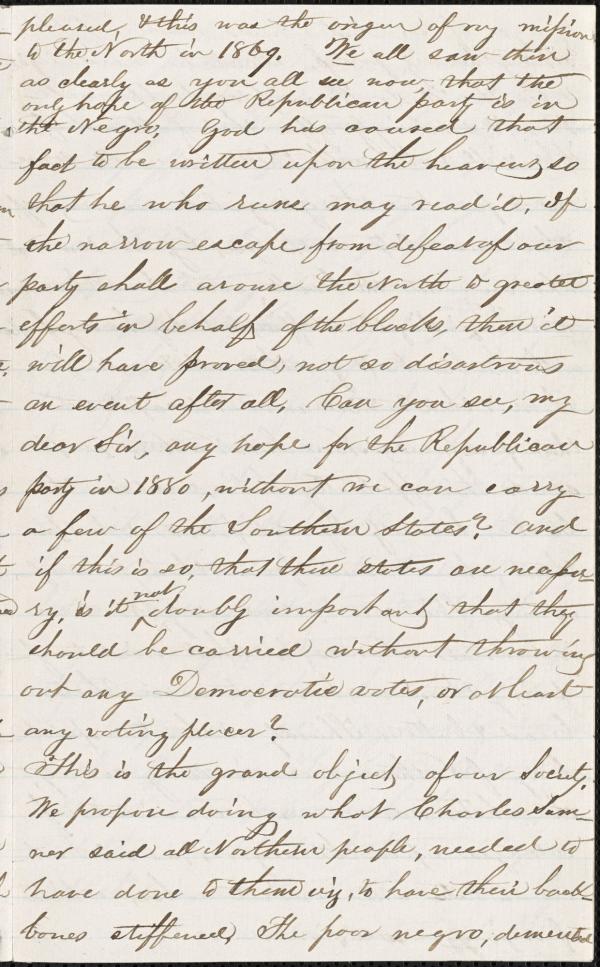 pleased, & this was the origin of my mission
to the North in 1869. We all saw then
as clearly as you all see now, that the
only hope of the Republican party is in
the Negro. God has caused that
fact to be written upon the heavens, so
that he who runs may read it. If
the narrow escape from defeat of our
party shall arouse the North to greater
efforts in behalf of the blacks, then it
will have proved, not so disastrous
an event after all. Can you see, my
dear Sir, any hope for the Republican
party in 1880, without we can carry
a few of the Southern States? And
if this is so, that these states are necessa-
ry, is it not doubly important, that they
should be carried without throwing
out any Democratic votes, or at least
any voting places?
This is the grand object, of our Society.
We propose doing what Charles Sum-
ner said all Northern people, needed to
have done to them viz, to have their back-
bones stiffened. The poor negro, demented